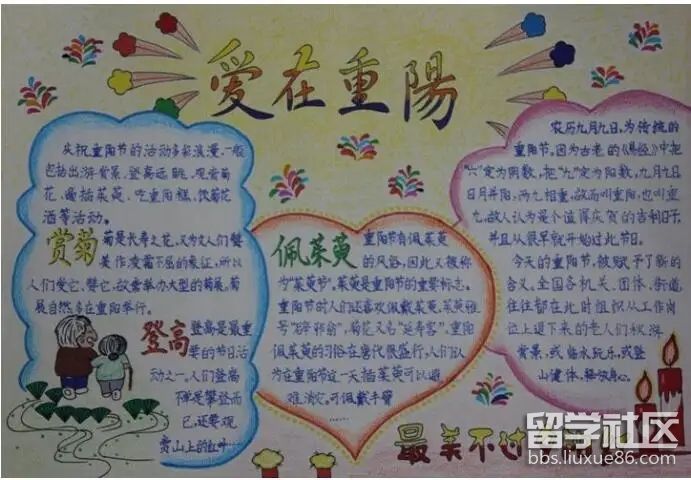 爱在重陽
庆祝重阳节的活动多彩浪漫,一般
包括出游赏景、登高远眺、观赏菊
花、遍插茱萸、吃重阳糕、饮菊花
酒等活动。
赏菊
菊是长寿之花,又为文人们赞
美作凌霜不屈的象征,所以
人们爱它、赞它,故常举办大型的菊展。菊
展自然多在重阳举行。
登高
登高是最重
要的节日活
动之一。人们登高
不单是攀登而
已,还要观
赏山上的红叶…
佩茱萸
重阳节有佩茱萸
的风俗,因此又被称
为“茱萸节”。茱萸是重阳节的重要标志。
重阳节时人们还喜欢佩戴茱萸,茱萸雅
号“辟邪翁”,菊花又名“延寿客”。重阳
佩茱萸的习俗在唐代很盛行,人们认
为在重阳节这一天插茱萸可以避
难消灾,可佩戴手臂
农历九月九日,为传统的
重阳节。因为古老的《易经》中把
“六”定为阴数,把“九”定为阳数,九月九日
日月并阳,两九相重,故而叫重阳,也叫重
九。故人认为是个值得庆贺的吉利日子,
并且从很早就开始过此节日。
今天的重阳节,被赋予了新的
含义,全国各机关、团体、街道,
往往都在此时组织从工作岗
位上退下来的老人们秋游
赏景,或临水玩乐,或登
山健体,释放身心。
最美不过
留学社区
bbs.liuxue86.com